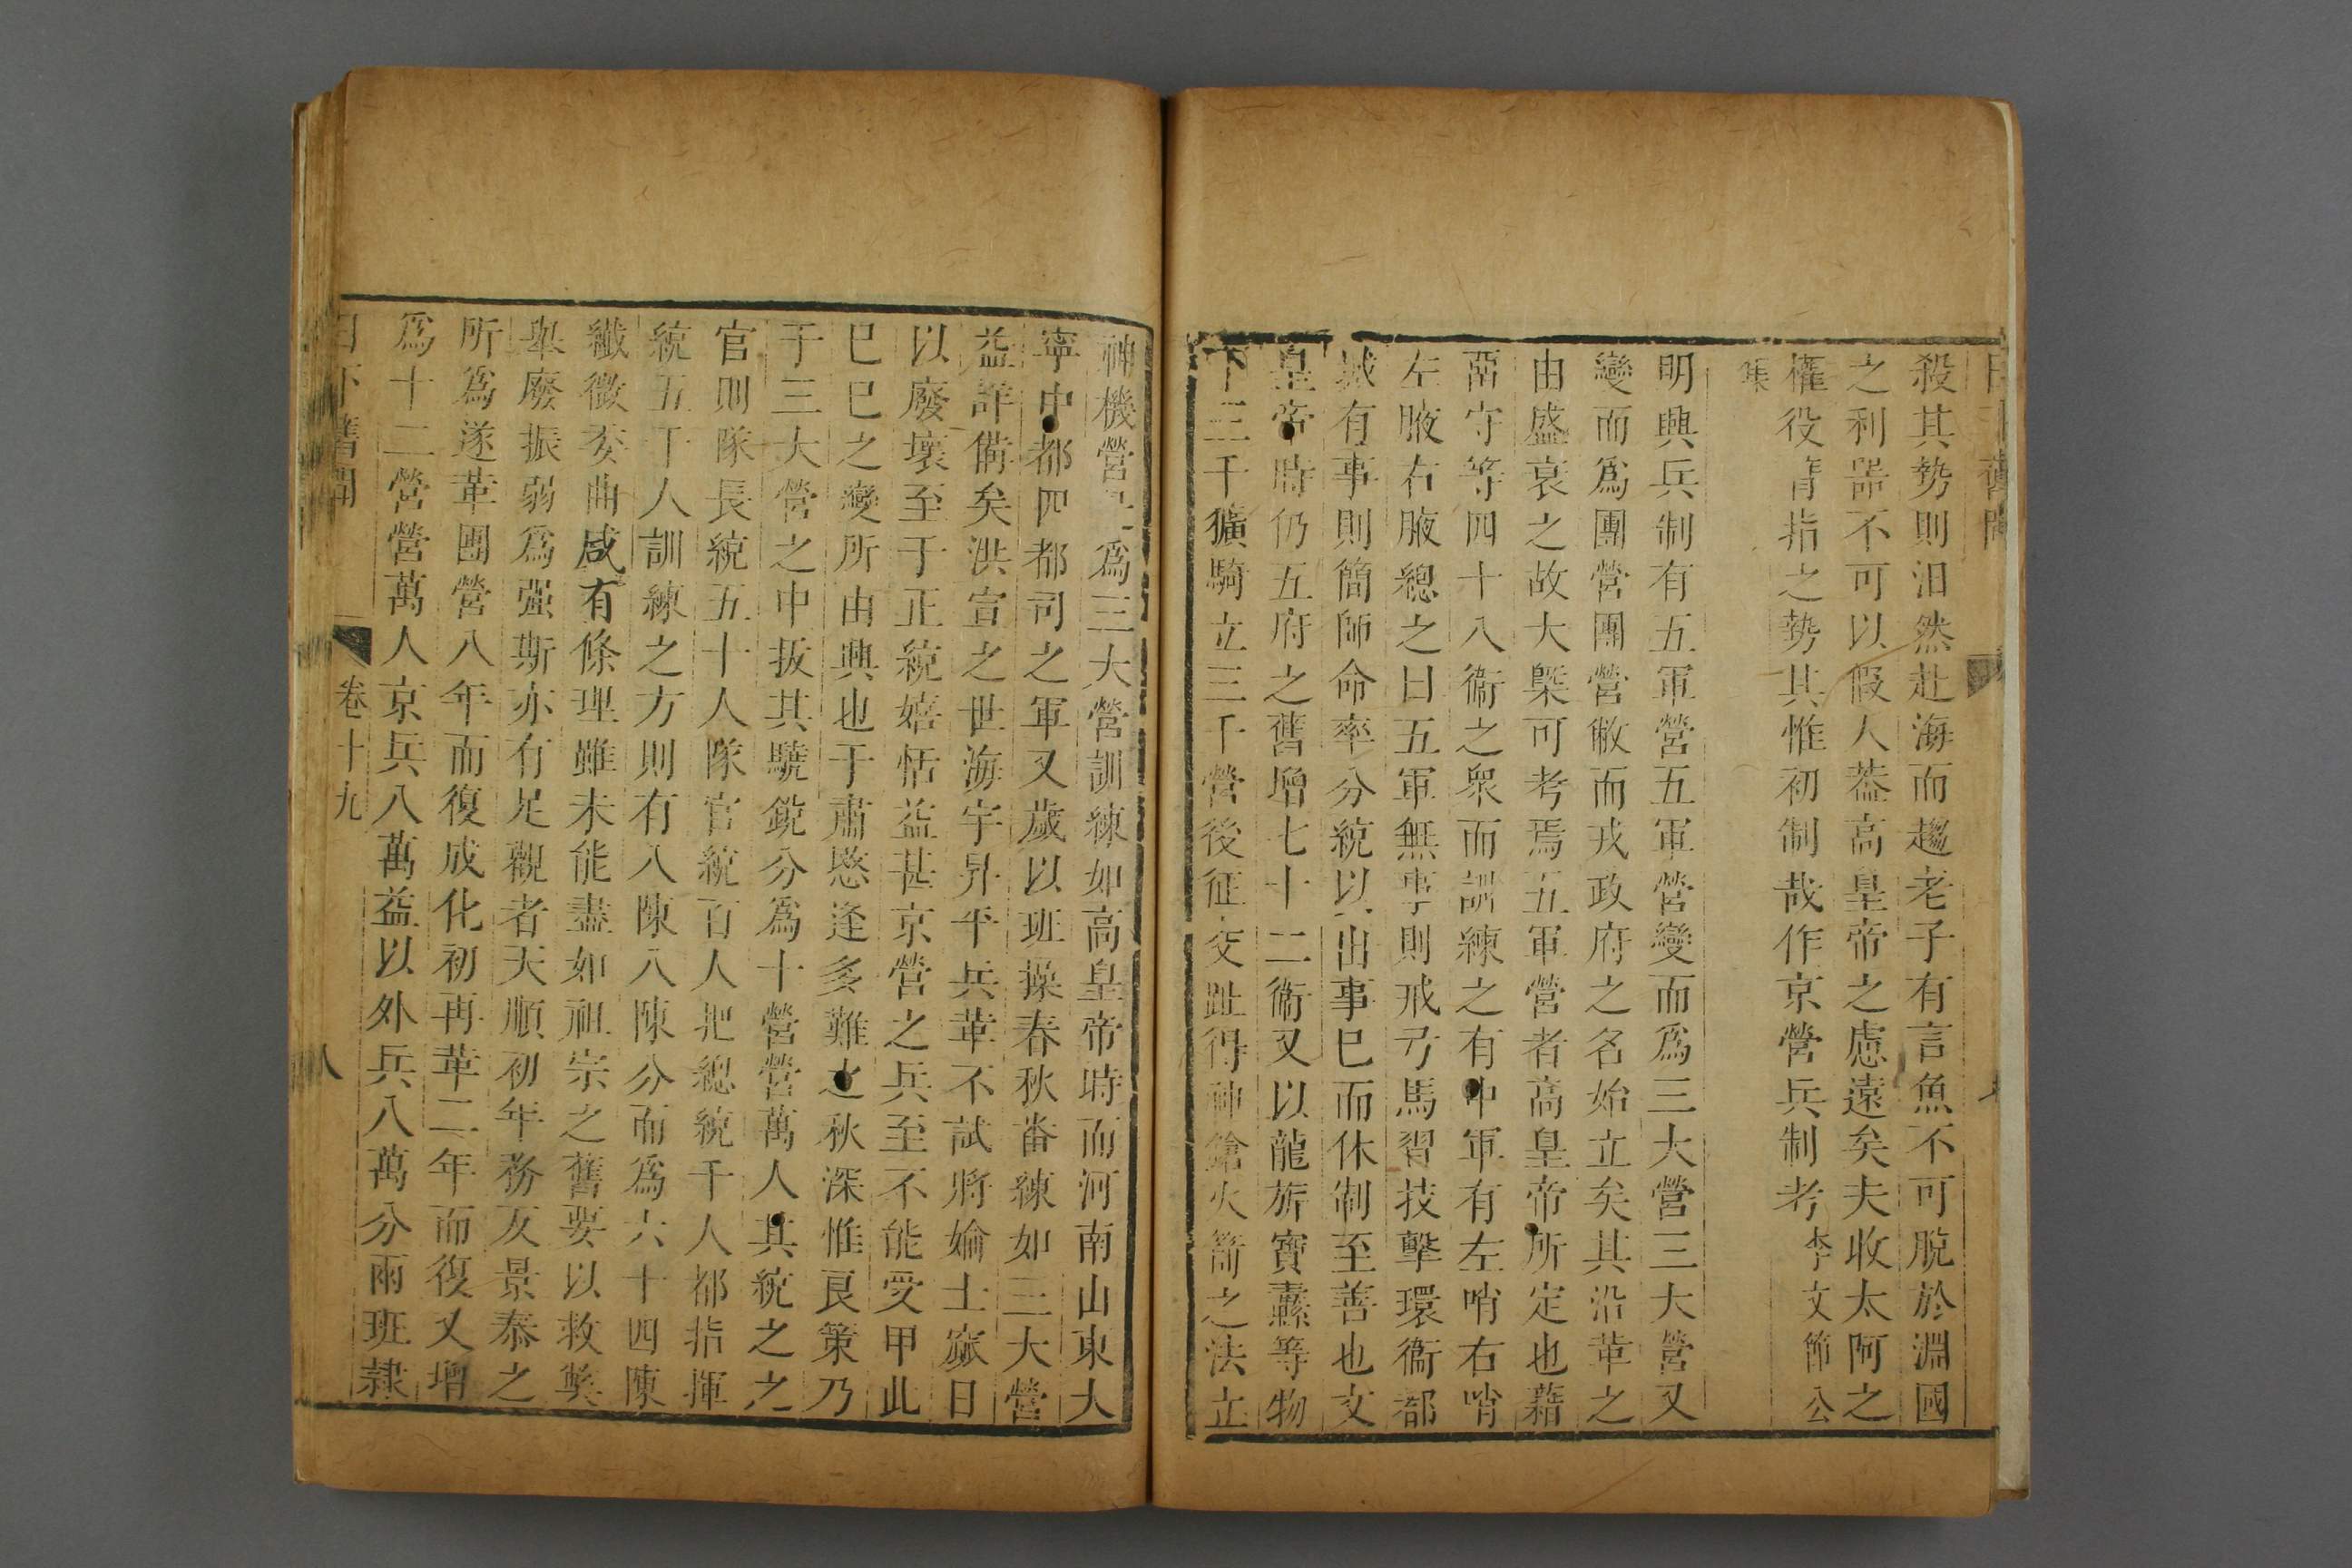 日下舊聞
殺其勢則汨然赴海而趨老子有言魚不可脫於淵國
之利器不可以假人葢高皇帝之慮遠矣夫收太阿之
權役背指之勢其惟初制哉作京營兵制考李文節公
集
明興兵制有五軍營五軍營變而爲三大營三大營又
變而爲團營團營敝而戎政府之名始立矣其沿革之
由盛衰之故大槩可考焉五軍營者高皇帝所定也藉
畱守等四十八衞之衆而訓練之有中軍有左哨右哨
左腋右腋總之曰五軍無事則戒弓馬習技擊環衞都
城有事則簡師命率分統以出事巳而休制至善也文
皇帝時仍五府之舊增七十二衞又以龍旂寶纛等物
下三千獷騎立三千營後征交趾得神鎗火箭之法立
神機營是爲三大營訓練如高皇帝時而河南山東大
寧中都四都司之軍又歲以班操春秋畨練如三大營
益詳備矣洪宣之世海宇昇平兵革不試將婾士窳日
以廢壞至于正統嬉恬益甚京營之兵至不能受甲此
巳巳之變所由興也于肅愍逢多難之秋深惟良策乃
于三大營之中抜其驍銳分爲十營營萬人其統之之
官則隊長統五十人隊官統百人把總統千人都指揮
統五千人訓練之方則有八陳八陳分而爲六十四陳
纎微委曲咸有條理雖未能盡如祖宗之舊要以救獘
舉廢振弱爲强斯亦有足觀者天順初年務反景泰之
所爲遂革團營八年而復成化初再革二年而復又增
爲十二營營萬人京兵八萬益以外兵八萬分兩班隷
日下舊聞 卷十九 八